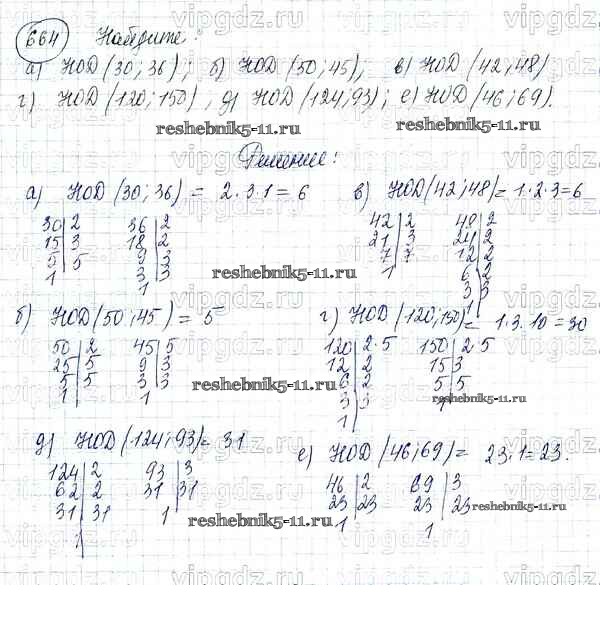 664 Найдите:
а) НОД (30; 36); б) НОД (50; 45); в) НОД (42; 48)
г) НОД (120; 150), д) НОД (124; 93); е) НОД (46; 69).
reshebnik5-11.ru
Решение:
а) НОД (30; 36) = 2·3·1 = 6
30|2 36|2
15|3 18|2
5|5 9|3
1 3|3
1
в) НОД (42; 48) = 1·2·3=6
42|2 48|2
21|3 24|2
7|7 12|2
1 6|2
3|3
reshebnik5-11.ru
б) НОД (50; 45) = 5
50|2 45|5
25|5 9|3
5|5 3|3
1 1
г) НОД (120; 150) = 1·3·10=30
120|2·5 150|2·5
12|2 15|3
6|2 5|5
3|3 1
1
reshebnik5-11.ru
д) НОД (124; 93) = 31
124|2 93|3
62|2 31|31
31|31 1
1
е) НОД (46; 69) = 23·1=23.
46|2 69|3
23|23 23|23
1 1
reshebnik5-11.ru
reshebnik5-11.ru
vipgdz.ru